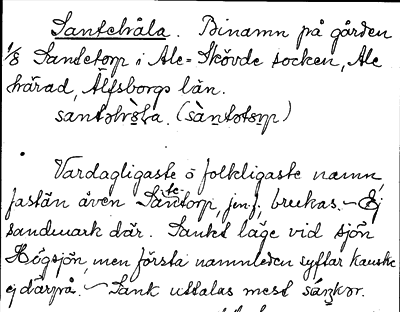 Santehåla. Binamn på gården
1/8 Santetorp i Ale-Skövde socken, Ale
härad, Älfsborgs län.
santəhå̀la. (sàntətɔrp)
Vardagligaste o folkligaste namn,
fastän även Santetorp, jmf, brukas. - Ej
sandmark där. Sankt läge vid sjön
Högsjön, men första namnleden syftar kanske
ej därpå. - Sank uttalas mest